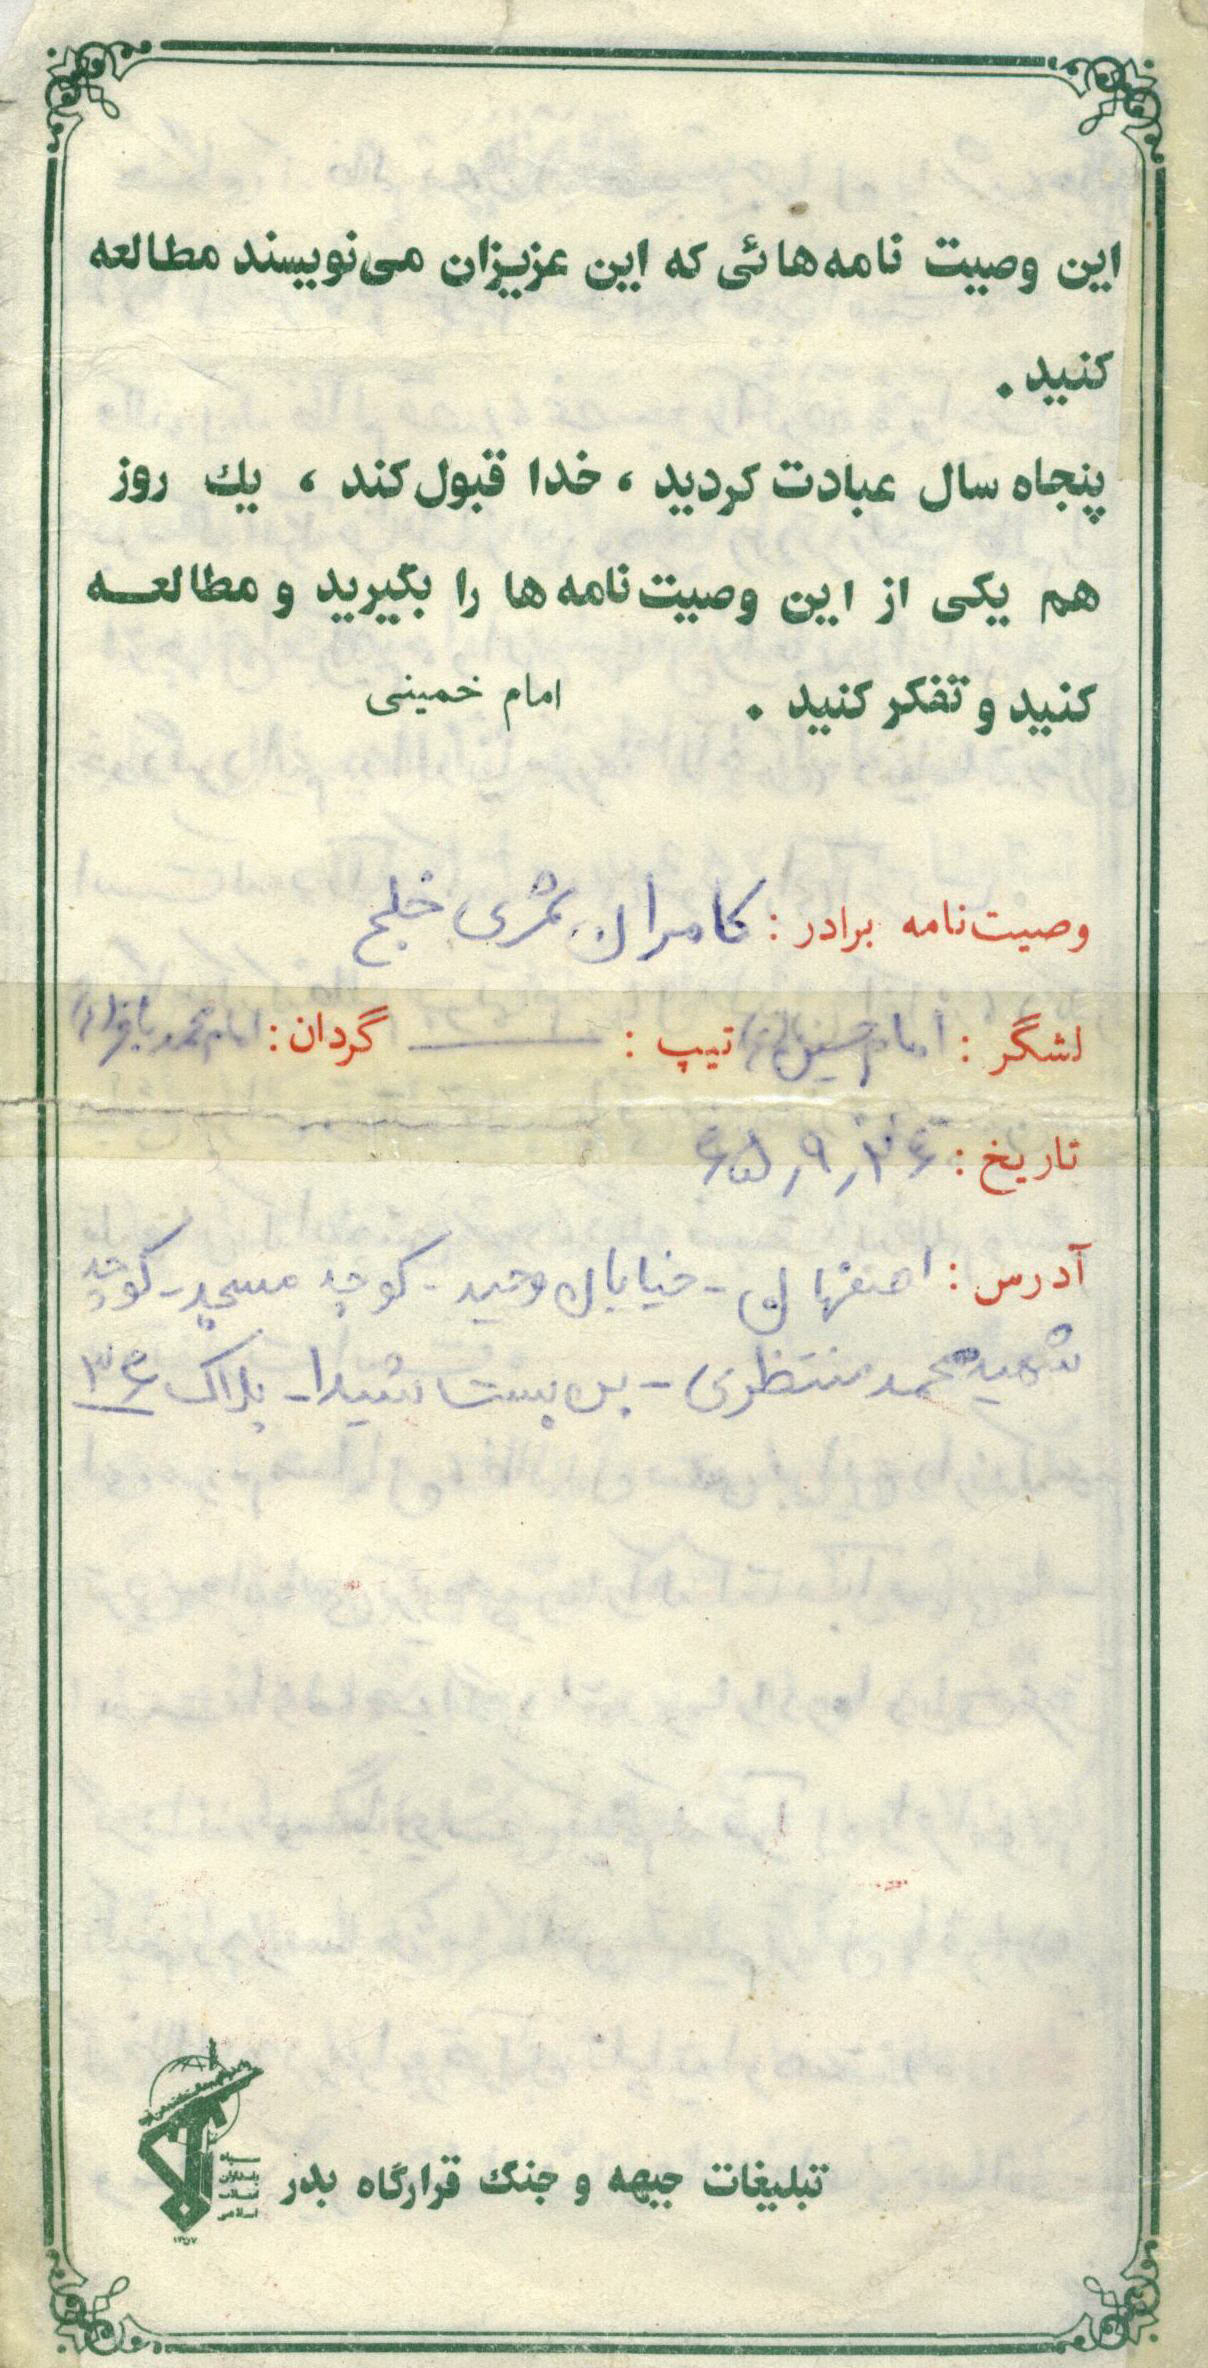 این وصیت نامه‌هائی که این عزیزان می‌نویسند مطالعه
کنید.
پنجاه سال عبادت کردید، خدا قبول کند، یك روز
هم یکی از این وصیت‌نامه‌ها را بگیرید و مطالعه
کنید و تفکر کنید. امام خمینی
وصیت‌نامه برادر: کامران خلج
لشگر: امام حسین تیپ: ــــ گردان: امام محمد باقر
تاریخ: ۶۵٫۹٫
آدرس: اصفهان - خیابان وحید - کوچه مسجد - کوچه
شهید محمد منتظری - بن بست شیدا - پلاک ۳۶
تبلیغات جبهه و جنگ قرارگاه بدر
سپاه
پاسداران
انقلاب
اسلامی